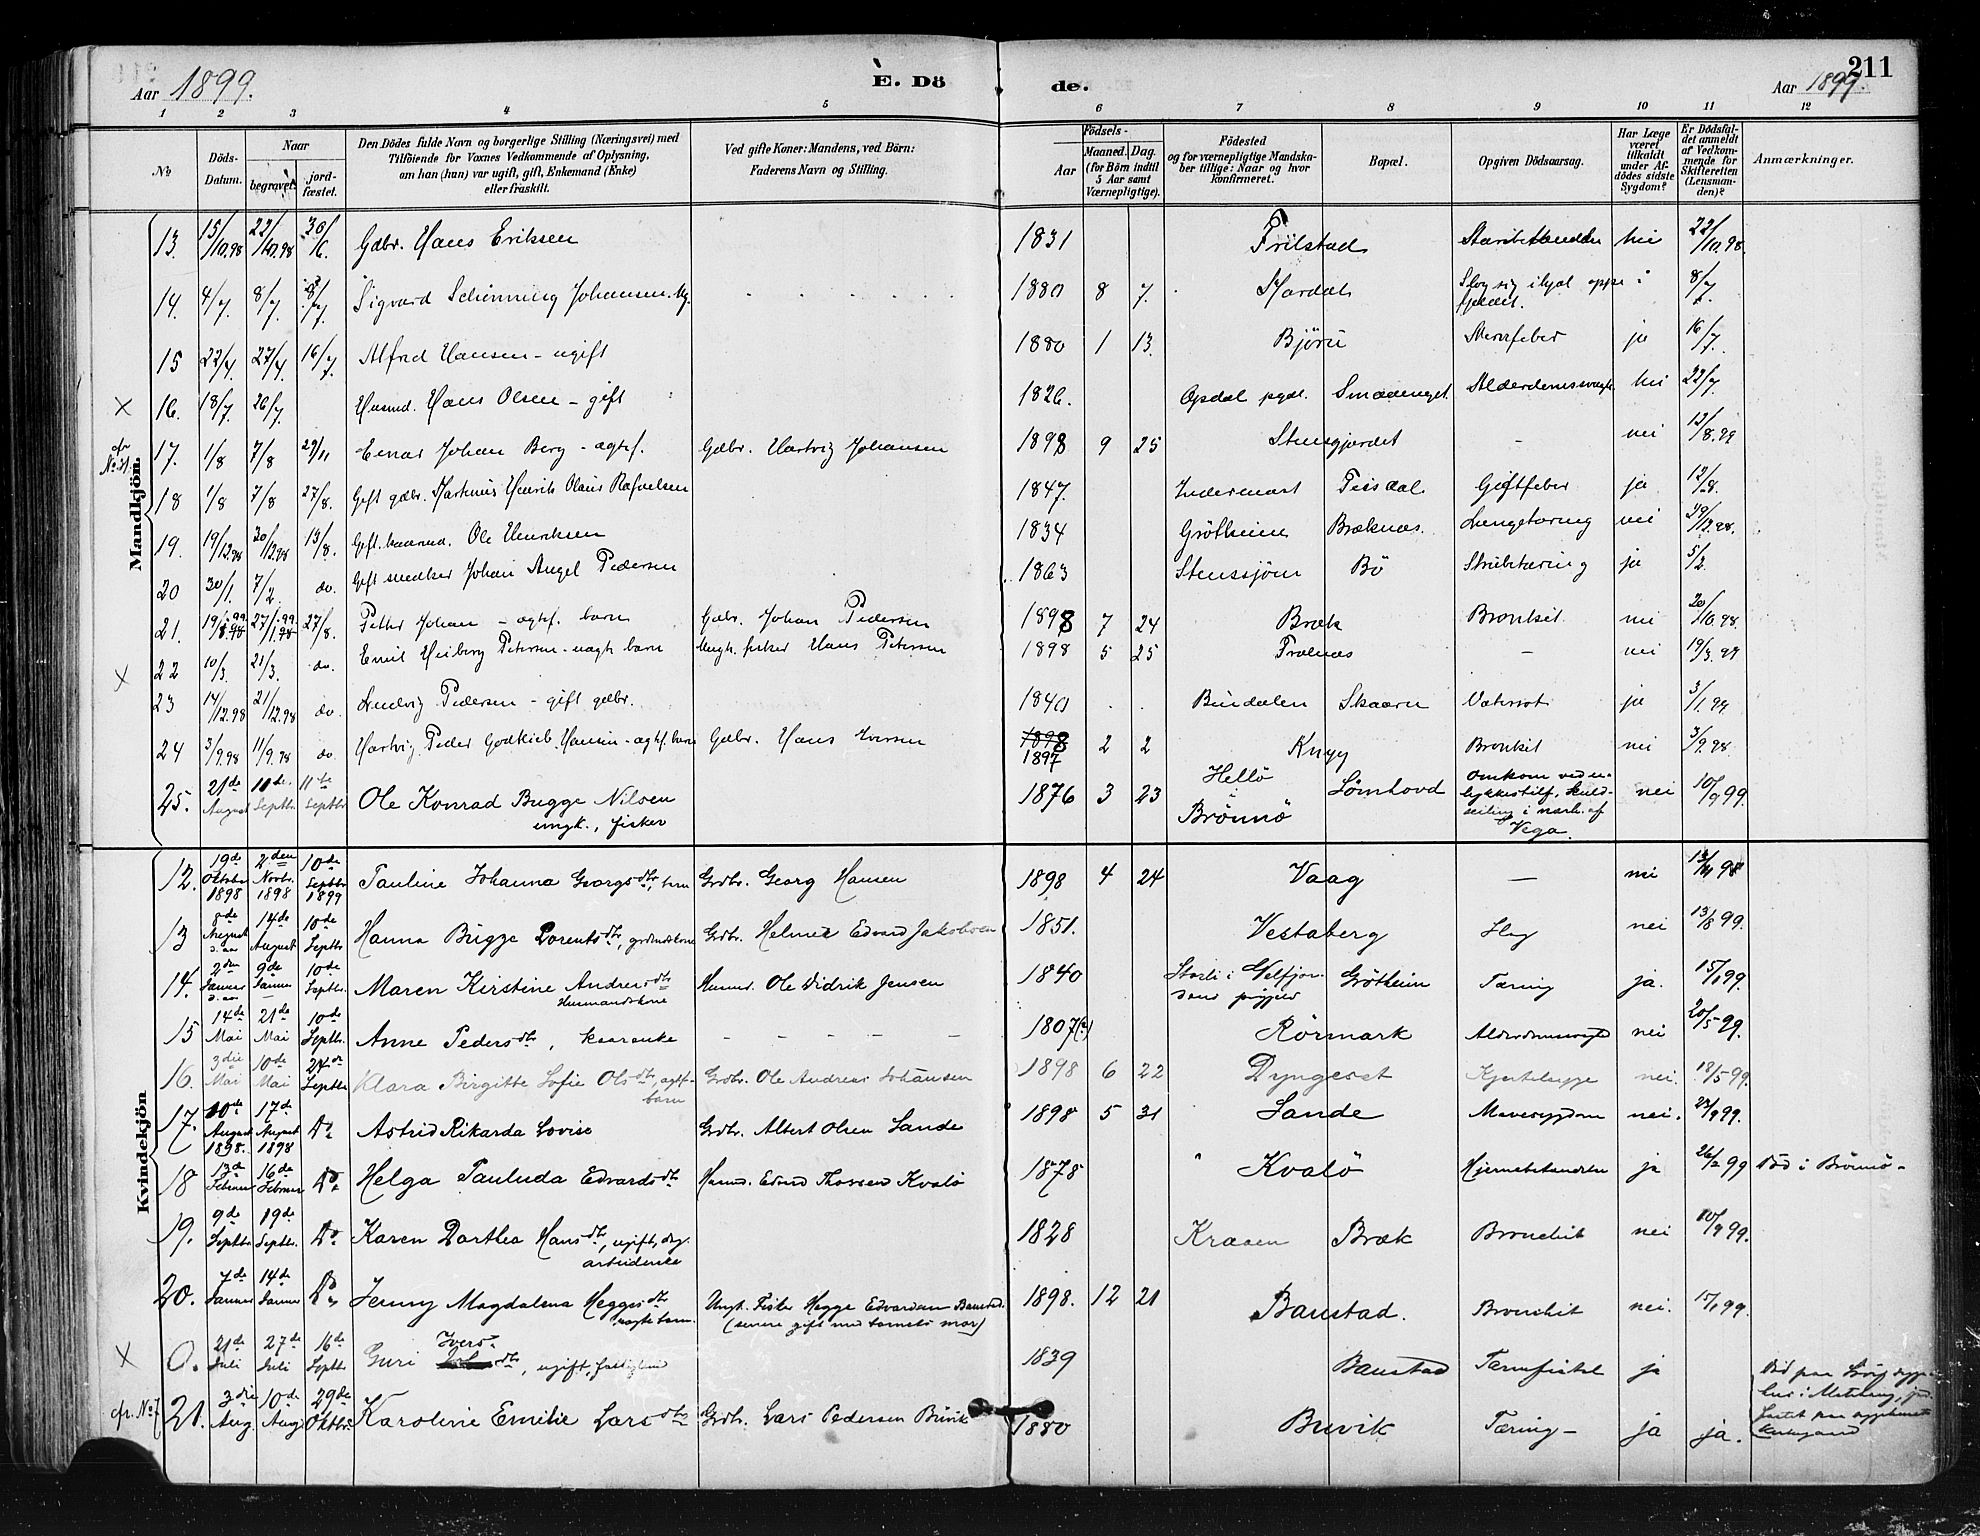 Aar 1899.
E. Dö
de.
Aar 1899.
211
1 2 3 4 5 6 7 8 9 10 11 12
No
Döds-Datum.
Naar
begravet.
jord-fæstet.
Den Dödes fulde Navn og borgerlige Stilling (Næringsvei) med
Tilföiende for Voxnes Vedkommende af Oplysning,
om han (hun) var ugift, gift, Enkemand (Enke)
eller fraskilt.
Ved gifte Koner: Mandens, ved Börn:
Faderens Navn og Stilling.
Födsels-
Aar
Maaned. Dag.
(for Börn indtil
5 Aar samt
Værnepligtige).
Födested
og for værnepligtige Mandska-
ber tillige: Naar og hvor
konfirmeret.
Bopæl.
Opgiven Dödsaarsag.
Har Læge
været
tilkaldt
under Af-
dödes sidste
Sygdom?
Er Dödsfal-
det anmeldt
af Vedkom-
mende for
Skifteretten
(Lensman-
den)?
Anmærkninger.
Mandkjön.
13. 15/10.98 22/10.98 Gdbr. Hans Eriksen 1831 Frilstad nei 22/10.98.
14. 4/7 8/7 8/7 Sigvard Schönning Johansen. 1880 8 7. Slog sig ihjel oppe i fjeldet. 8/7.
15 22/4. 27/4. 16/7. Alfred Hansen - ugift 1880 1 13. Bjørn ja 16/7.
× 16. 18/7. 26/7. Husmd. Hans Olsen - gift 1826. Opdal pgd. nei 22/7.
17. 1/8 7/8 29/11 Einar Johan Berg - ægtef. Gdbr. Hartvig Johansen 1898 9 25 Stensgjerdet - nei 12/8.99
18 1/8 7/8 27/8. Gift gdbr. Martinus Henrik Olaus Rafaelsen 1847. Teisdal Giftfeber ja 12/8.
19. 19/12.98 30/12.98 13/8. Gift. Ole Henriksen 1834 Grøtheim Bræknæs. Lungetæring nei 29/12.98.
20 30/1. 7/2. do. Gift snedker Johan Angel Pedersen 1863 Bö Strubetæring ja 5/2.
21. 27/8. Petter Johan - ægtef. barn Gdbr. Johan Pedersen 1898 7 24 Bræk Bronkit nei 20/10.98.
× 22 10/3. 21/3. do. Emil Heiberg Petersen - uægte barn Ungk. fisker Hans Petersen 1898 5 25 Trælnæs - nei 19/3.99
23 14/12.98 21/12.98 do. Ludvig Pedersen - gift gdbr. 1840 Bindalen Skaarn Vatersot ja 3/1.99.
24 3/9.98 11/9.98 do Hartvig Peder Hansen - ægtef. barn Gdbr. Hans Iversen 1898 1897 2 2 Bronkit nei 3/9.98.
25. 21de August 10de. Septbr. 11te Septbr. Ole Konrad Bugge Nilsen
ungk., fisker 1876 3 23 Hellö i Brönnö Sömhovd Omkom ved u-
lykkestilf., kuld-
seiling i nærh. af
Vega. nei 10/9 99.
Kvindekjön
12. 19de Oktober 1898 2den Novbr. 1898 10de Septbr. 1899 Pauline Johanna Georgsdtr, barn Grdbr. Georg Hansen 1898 4 24 Vaag - nei
13 8de August d. aar 14de August 10de Septbr. Hanna Bugge Lorentsdtr, Grdbr. Helmer Edvard Jakobsen 1851. Vestaberg Slag nei 13/8 99.
14. 2den Januar d. aar 9de Januar 10de Septbr. Maren Kirstine Andreasdtr
Husmandskone Husmd. Ole Didrik Jensen 1840 Storli i Velfjor-
dens prgjeld Grötheim Tæring ja. 15/1 99.
15 14de Mai 21de Mai 10de Septbr. Anne Pedersdtr, kaarenke - - - - 1807(?) Rörmark nei 20/5 99.
16. 3die Mai 10de Mai 24de Septbr. Klara Birgitte Sofie Olsdtr, ægtef.
barn Grdbr. Ole Andreas Johansen 1898 6 22 Dyngeset Kjertelsyge nei 18/5 99.
17. 10de August 1898. 17de August 1898 Do Astrid Rikarda Lovise Grdbr. Albert Olsen Sande 1898 5 31 Sande Mavesygdom nei.
18 13de Februar 16de Februar Do Helga Paulada Edvardsdtr Husmd. Edvard Thorsen Kvalö 1878 Kvalö Hjernebetændelse ja 26/2 99 Död i Brönnö-
19. 9de Septbr 19de Septbr. Do Karen Dorthea Hansdtr, ugift, dag-
arbeiderske 1828 Kraaen Bræk Bronchit nei 10/9 99.
20. 7de Januar 14de Januar Do Jenny Magdalena Heggesdtr
uægte barn Ungk. Fisker Hegge Edvardsen Baustad.
(senere gift med barnets mor) 1898. 12 21 Baustad. Bronchit nei. 15/1 99.
× 0. 21de Juli 27de Juli 16de Septbr Guri Iversdtr, ugift, 1839 Baustad Tarmfistel ja
cfr. No 7 21. 3die Aug. 10de Aug 29de Oktbr. Karoline Emilie Larsdtr Grdbr. Lars Pedersen Buvik 1880 Buvik Tæring - ja ja.